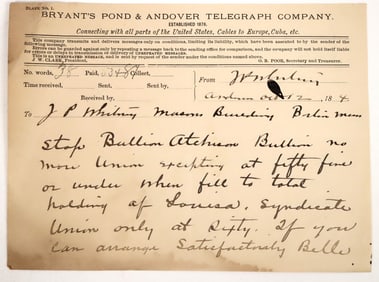 BLANK No. 1.
BRYANT'S POND & ANDOVER TELEGRAPH COMPANY.
ESTABLISHED 1879.
Connecting with all parts of the United States, Cables to Europe, Cuba, etc.
This company transmits and delivers messages only on conditions, limiting its liability, which have been assented to by the sender of the following message.
Errors can be guarded against only by repeating a message back to the sending office for comparison, and the company will not hold itself liable for errors or delays in transmission or delivery of UNREPEATED MESSAGES.
This is an UNREPEATED MESSAGE, and is sent by request of the sender under the conditions named above.
J. W. CLARK, President. G. B. POOR, Secretary and Treasurer.
No. words, 38 Paid, Collect.
Time received, Sent,
Received by
From J P Whitney
Oct 12 18
To J. P. Whitney Masons Building Boston Mass
Stop Bullion Atchison Bullion no
more Union excepting at fifty five
or under when fill to total
holding of Louisa. Syndicate
Union only at Sixty. If you
can arrange Satisfactorily Belle